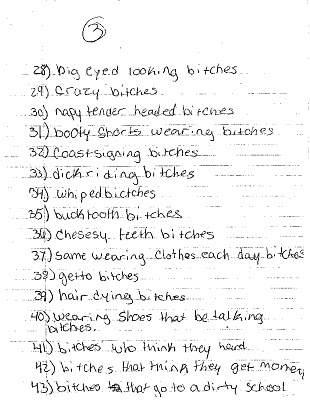 3
28) Big eyed looking bitches
29) Crazy bitches.
30) napy tender headed bitches
31) booty shorts wearing bitches
32) Coastsigning bitches
33) dick riding bitches
34) whiped bictches
35) bucktooth bitches
36) chesesy teeth bitches
37) same wearing clothes each day bitches
38) getto bitches
39) hair dying bitches
40) wearing shoes that be talking
bitches.
41) bitches who think they hard
42) bitches that think they get money
43) bitches that go to a dirty school